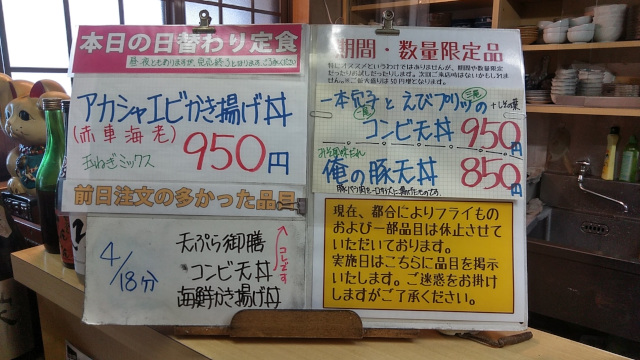 本日の日替わり定食
アカシャエビかき揚げ丼
(赤車海老)
玉ねぎミックス
950円
前日注文の多かった品目
4/18分
天ぷら御膳
コンビ天丼
海鮮かき揚げ丼
コレです
期間・数量限定品
一本穴子とえびプリッツの
コンビ天丼 950円
俺の豚天丼 850円
現在、都合によりフライもの
および一部品目は休止させて
いただいております。
実施日はこちらに品目を掲示
いたします。ご迷惑をお掛け
しますがご了承ください。